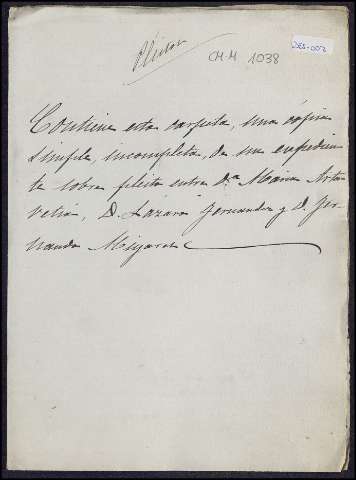 Pleitos
CM-M 1038
DES-002
Contiene esta carpeta, una copia
simple, incompleta, de un expedien
te sobre pleito entre D.ª Maria Arta
D. Lázaro Fernandez y D. Fer
nando